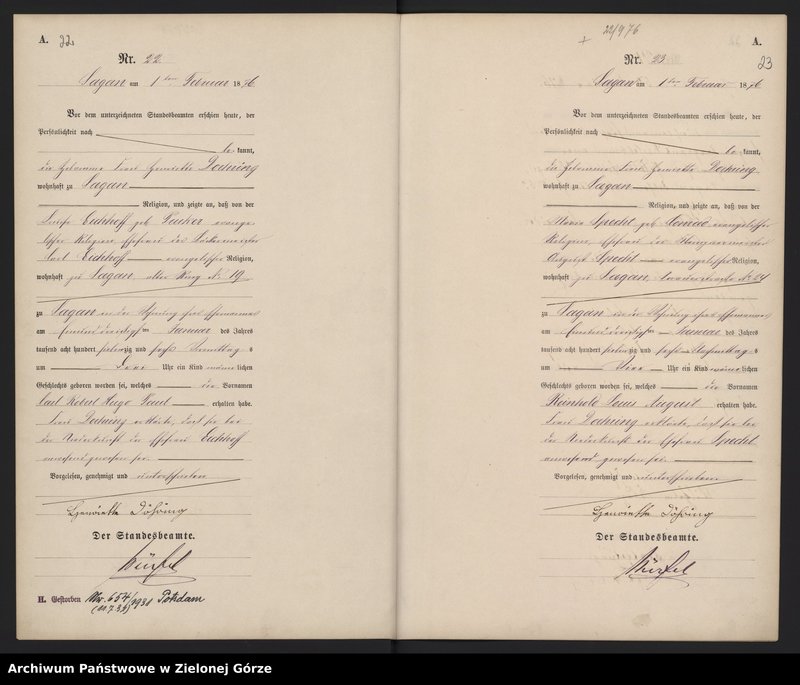 A. 22.
Nr. 22
Sagan am 1ten Februar 1876.
Vor dem unterzeichneten Standesbeamten erschien heute, der
Persönlichkeit nach
be kannt,
die Hebamme Frau Henriette Doehring
wohnhaft zu Sagan
Religion, und zeigte an, daß von der
Eichhoff geb. evange-
lischer Religion, Ehefrau des Bäckermeister
Carl Eichhoff evangelischer Religion,
wohnhaft zu Sagan, alter Ring No 19
zu Sagan in der Wohnung ihres Ehemannes
am einunddreißigsten Januar des Jahres
tausend acht hundert siebenzig und sechs Vormittags
um Uhr ein Kind männlichen
Geschlechts geboren worden sei, welches die Vornamen
Carl Robert Hugo Paul erhalten habe.
Frau Doehring erklärte, daß sie bei
der Niederkunft der Ehefrau Eichhoff
anwesend gewesen sei.
Vorgelesen, genehmigt und unterschrieben
Henriette Döhring
Der Standesbeamte.
H. Gestorben Nr. 654/1931 Potsdam
A.
23
22/9 76
Nr. 23
Sagan am 1ten Februar 1876
Vor dem unterzeichneten Standesbeamten erschien heute, der
Persönlichkeit nach
be kannt,
die Hebamme Frau Henriette Doehring
wohnhaft zu Sagan
Religion, und zeigte an, daß von der
Maria Specht geb. Conrad evangelischer
Religion, Ehefrau des
August Specht evangelischer Religion,
wohnhaft zu Sagan, No 24
zu Sagan in der Wohnung ihres Ehemannes
am einunddreißigsten Januar des Jahres
tausend acht hundert siebenzig und sechs Nachmittags
um Uhr ein Kind männlichen
Geschlechts geboren worden sei, welches die Vornamen
Reinhold Louis August erhalten habe.
Frau Doehring erklärte, daß sie bei
der Niederkunft der Ehefrau Specht
anwesend gewesen sei.
Vorgelesen, genehmigt und unterschrieben
Henriette Döhring
Der Standesbeamte.
Archiwum Państwowe w Zielonej Górze